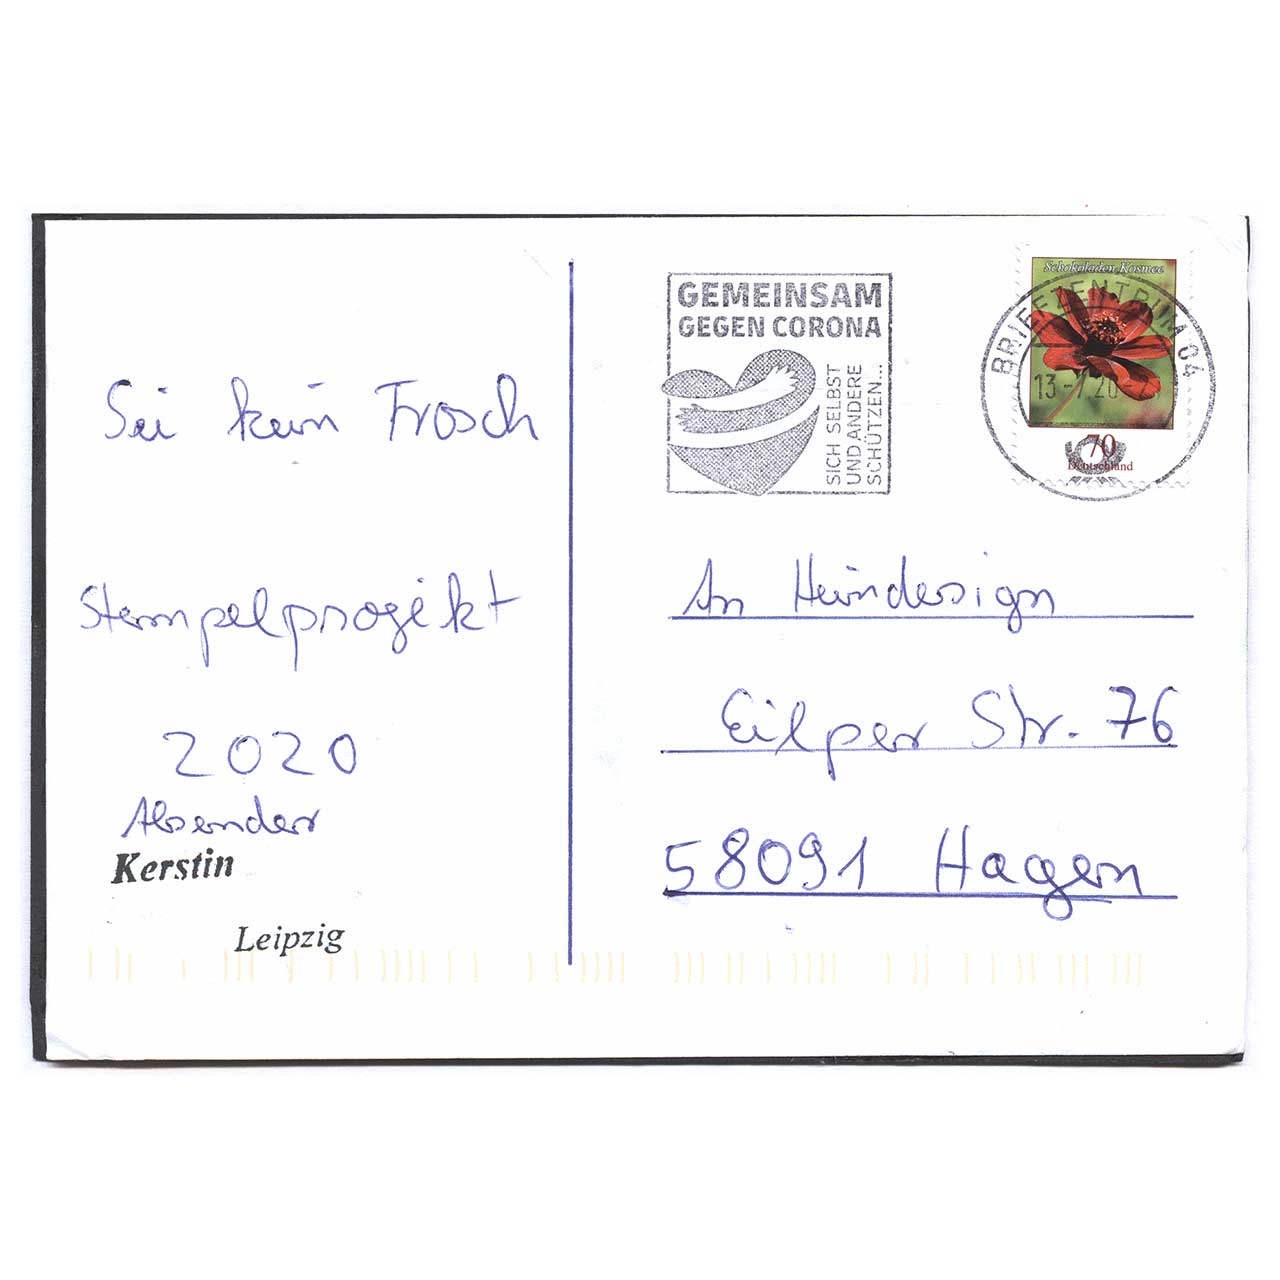 Sei kein Frosch
Stempelprojekt
2020
Absender
Kerstin
Leipzig
GEMEINSAM
GEGEN CORONA
SICH SELBST
UND ANDERE
SCHÜTZEN...
Schokoladen-Kosmee
BRIEFZENTRUM 04
70
Deutschland
An Heindesign
Eilper Str. 76
58091 Hagen